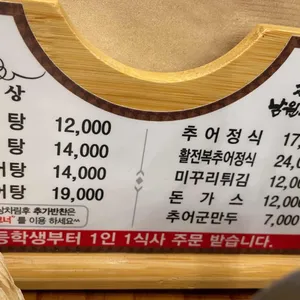 상
탕 12,000
탕 14,000
어탕 14,000
탕 19,000
상차림후 추가반찬은
너" 를 이용 하세요~
남원
추어정식 17,
활전복추어정식 24,0
미꾸리튀김 12,00
돈가스 12,000
추어군만두 7,000
등학생부터 1인 1식사 주문 받습니다.